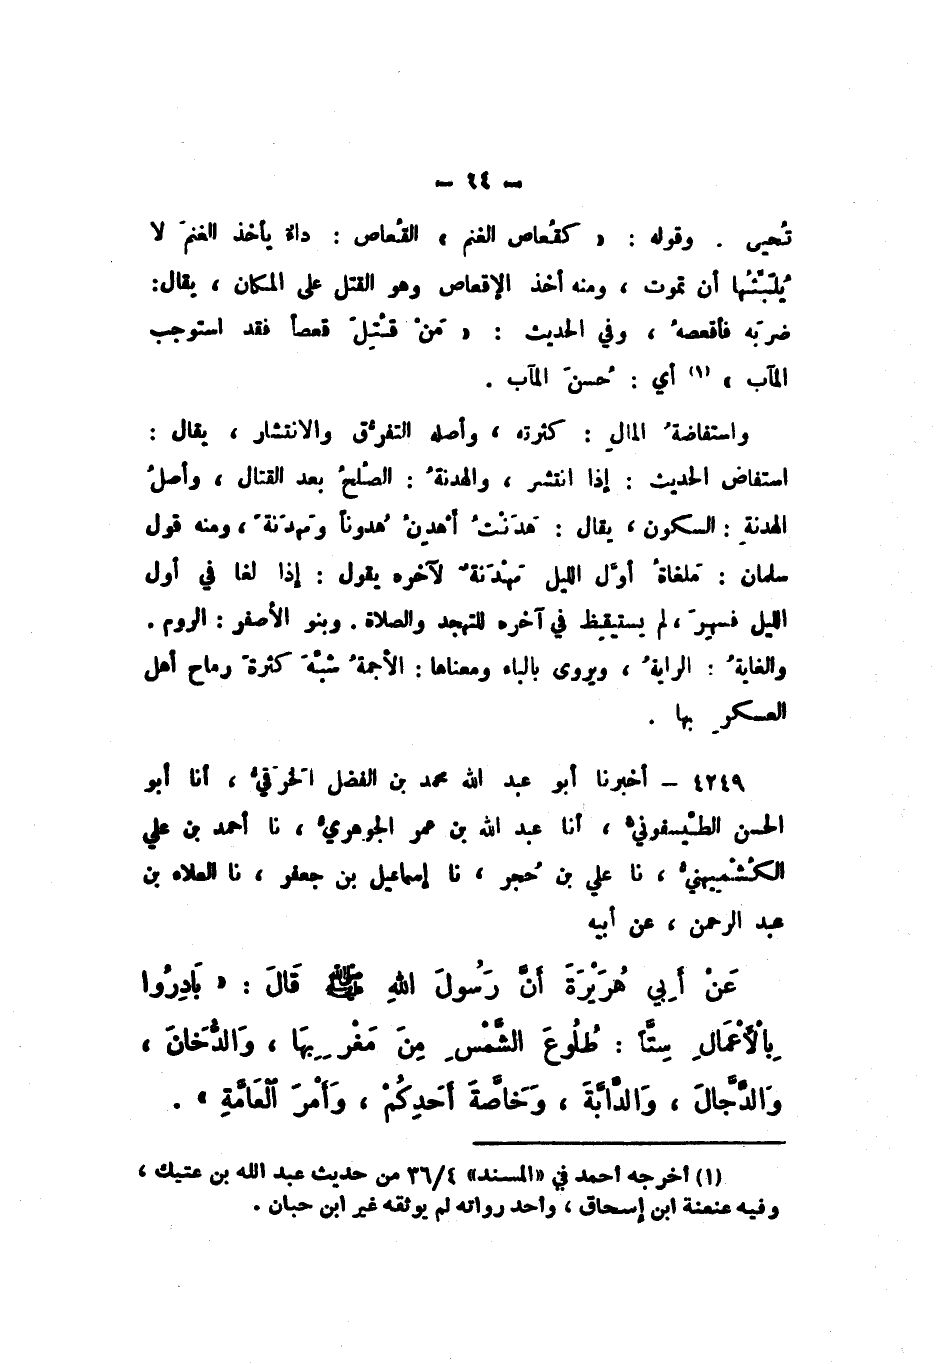 — ٦٤ —
تُحيى . وقوله : « كقُعاص الغنم » القُعاص : داءٌ يأخذ الغنمَ لا
يُلبّثُها أن تموت ، ومنه أخذ الإقعاص وهو القتل على المكان ، يقال:
ضربَه فأقعصهُ ، وفي الحديث : « مَنْ قُتِلَ قعصاً فقد استوجب
المآب » (١) أي : حُسنَ المآب .
واستفاضةُ المالِ : كثرته ، وأصله التفرُّق والانتشار ، يقال :
استفاض الحديث : إذا انتشر ، والهدنةُ : الصُلحُ بعد القتال ، وأصلُ
الهدنةِ : السكون ، يقال : هَدَنْتُ أهْدِنُ هُدوناً ومَهدَنَةً ، ومنه قول
سلمان : مَلغاةُ أوَّل الليل مَهْدَنَةٌ لآخره يقول : إذا لغا في أول
الليل فسهِرَ ، لم يستيقِظ في آخره للتهجد والصلاة . وبنو الأصفر : الروم .
والغايةُ : الرايةُ ، ويروى بالباء ومعناها : الأجمةُ شبَّهَ كثرةَ رماح أهل
العسكرِ بها .
٤٢٤٩ – أخبرنا أبو عبد الله محمد بن الفضل الخَرَقيُّ ، أنا أبو
الحسن الطَّيسفونيُّ ، أنا عبد الله بن عمر الجوهريُّ ، نا أحمد بن علي
الكُشْمِيهنيُّ ، نا علي بن حُجر ، نا إسماعيل بن جعفر ، نا العلاء بن
عبد الرحمن ، عن أبيه
عَنْ أَبِي هُرَيْرَةَ أَنَّ رَسُولَ اللهِ ﷺ قَالَ : « بَادِرُوا
بِالْأَعْمَالِ سِتًّا : طُلُوعَ الشَّمْسِ مِنَ مَغْرِبِهَا ، وَالدُّخَانَ ،
وَالدَّجَّالَ ، وَالدَّابَّةَ ، وَخَاصَّةَ أَحَدِكُمْ ، وَأَمْرَ الْعَامَّةِ » .
(١) أخرجه أحمد في «المسند» ٣٦/٤ من حديث عبد الله بن عتيك ،
وفيه عنعنة ابن إسحاق ، وأحد رواته لم يوثقه غير ابن حبان .